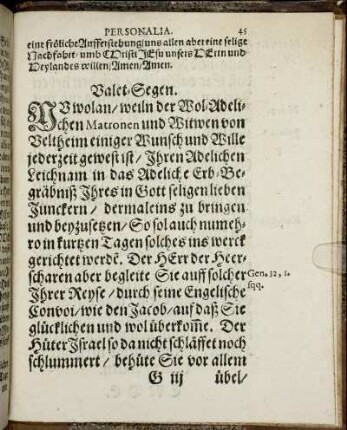 PERSONALIA. 45
eine fröliche Aufferstehung/uns allen aber eine selige
Nachfahrt/ umb Christi JEsu unsers HErrn und
Heylandes willen/Amen/Amen.
Valet-Segen.
NUwolan/weiln der Wol-Adeli-
chen Matronen und Witwen von
Veltheim einiger Wunsch und Wille
jederzeit gewest ist/ Ihren Adelichen
Leichnam in das Adeliche Erb-Be-
gräbniß Ihres in Gott seligen lieben
Junckern/ dermaleins zu bringen
und beyzusetzen/ So sol auch numeh-
ro in kurtzen Tagen solches ins werck
gerichtet werdē. Der HErr der Heer-
scharen aber begleite Sie auff solcher Gen. 32, 1.
Ihrer Reyse/ durch seine Engelische sqq.
Convoi/wie den Jacob/auf daß Sie
glücklichen und wol überkom̄e. Der
Hüter Israel so da nicht schläffet noch
schlummert/ behüte Sie vor allem
G iij übel/